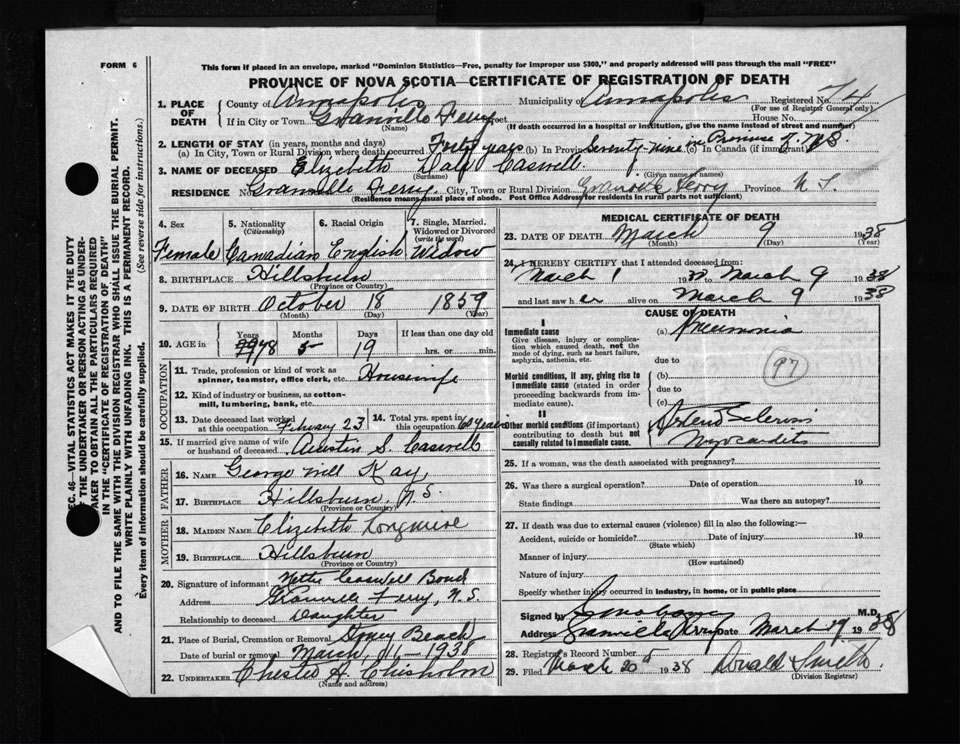 FORM 6
This form if placed in an envelope, marked "Dominion Statistics—Free, penalty for improper use $300," and properly addressed will pass through the mail "FREE"
PROVINCE OF NOVA SCOTIA—CERTIFICATE OF REGISTRATION OF DEATH
1. PLACE OF DEATH County of Annapolis Municipality of Annapolis Registered No. 74
(For use of Registrar General only)
If in City or Town Granville Ferry Street House No.
(Name) (If death occurred in a hospital or institution, give the name instead of street and number)
2. LENGTH OF STAY (in years, months and days)
(a) In City, Town or Rural Division where death occurred Forty years (b) In Province Seventy-nine in Province of N.S. (c) In Canada (if immigrant)
3. NAME OF DECEASED Elizabeth Caswell
(Surname) (Given name or names)
RESIDENCE Granville Ferry City, Town or Rural Division Granville Ferry Province N.S.
(Residence means usual place of abode. Post Office Address for residents in rural parts not sufficient)
4. Sex 5. Nationality (Citizenship) 6. Racial Origin 7. Single, Married, Widowed or Divorced (write the word)
Female Canadian English Widow
8. BIRTHPLACE Hillsburn
(Province or Country)
9. DATE OF BIRTH October 18 1859
(Month) (Day) (Year)
10. AGE in Years 78 Months 5 Days 19 If less than one day old hrs. or min.
OCCUPATION
11. Trade, profession or kind of work as spinner, teamster, office clerk, etc. Housewife
12. Kind of industry or business, as cotton-mill, lumbering, bank, etc.
13. Date deceased last worked at this occupation February 23 14. Total yrs. spent in this occupation 60 Years
15. If married give name of wife or husband of deceased Austin S. Caswell
FATHER
16. NAME George Kay
17. BIRTHPLACE Hillsburn, N.S.
(Province or Country)
MOTHER
18. MAIDEN NAME Elizabeth Longmire
19. BIRTHPLACE Hillsburn
(Province or Country)
20. Signature of informant Caswell Bond
Address Granville Ferry, N.S.
Relationship to deceased Daughter
21. Place of Burial, Cremation or Removal Stoney Beach
Date of burial or removal March, 11 - 1938
22. UNDERTAKER Chester A. Chisholm
(Name and address)
MEDICAL CERTIFICATE OF DEATH
23. DATE OF DEATH March 9 1938
(Month) (Day) (Year)
24. I HEREBY CERTIFY that I attended deceased from:
March 1 1938 to March 9 1938
and last saw her alive on March 9 1938
CAUSE OF DEATH
I
Immediate cause (a) Pneumonia
Give disease, injury or complication which caused death, not the mode of dying, such as heart failure, asphyxia, asthenia, etc.
due to
97
Morbid conditions, if any, giving rise to immediate cause (stated in order proceeding backwards from immediate cause).
(b)
due to
(c)
II
Other morbid conditions (if important) contributing to death but not causally related to immediate cause.
Arterio Sclerosis
Myocarditis
25. If a woman, was the death associated with pregnancy?
26. Was there a surgical operation? Date of operation 19
State findings Was there an autopsy?
27. If death was due to external causes (violence) fill in also the following:—
Accident, suicide or homicide? Date of injury 19
(State which)
Manner of injury
(How sustained)
Nature of injury
Specify whether injury occurred in industry, in home, or in public place
Signed by M.D.
Address Granville Ferry Date March 19 1938
28. Registrar's Record Number 5
29. Filed March 20th 1938 Donald Smith
(Division Registrar)
SEC. 46—VITAL STATISTICS ACT MAKES IT THE DUTY OF THE UNDERTAKER OR PERSON ACTING AS UNDERTAKER TO OBTAIN ALL THE PARTICULARS REQUIRED IN THE "CERTIFICATE OF REGISTRATION OF DEATH"
AND TO FILE THE SAME WITH THE DIVISION REGISTRAR WHO SHALL ISSUE THE BURIAL PERMIT.
WRITE PLAINLY WITH UNFADING INK. THIS IS A PERMANENT RECORD.
Every item of Information should be carefully supplied. (See reverse side for instructions.)